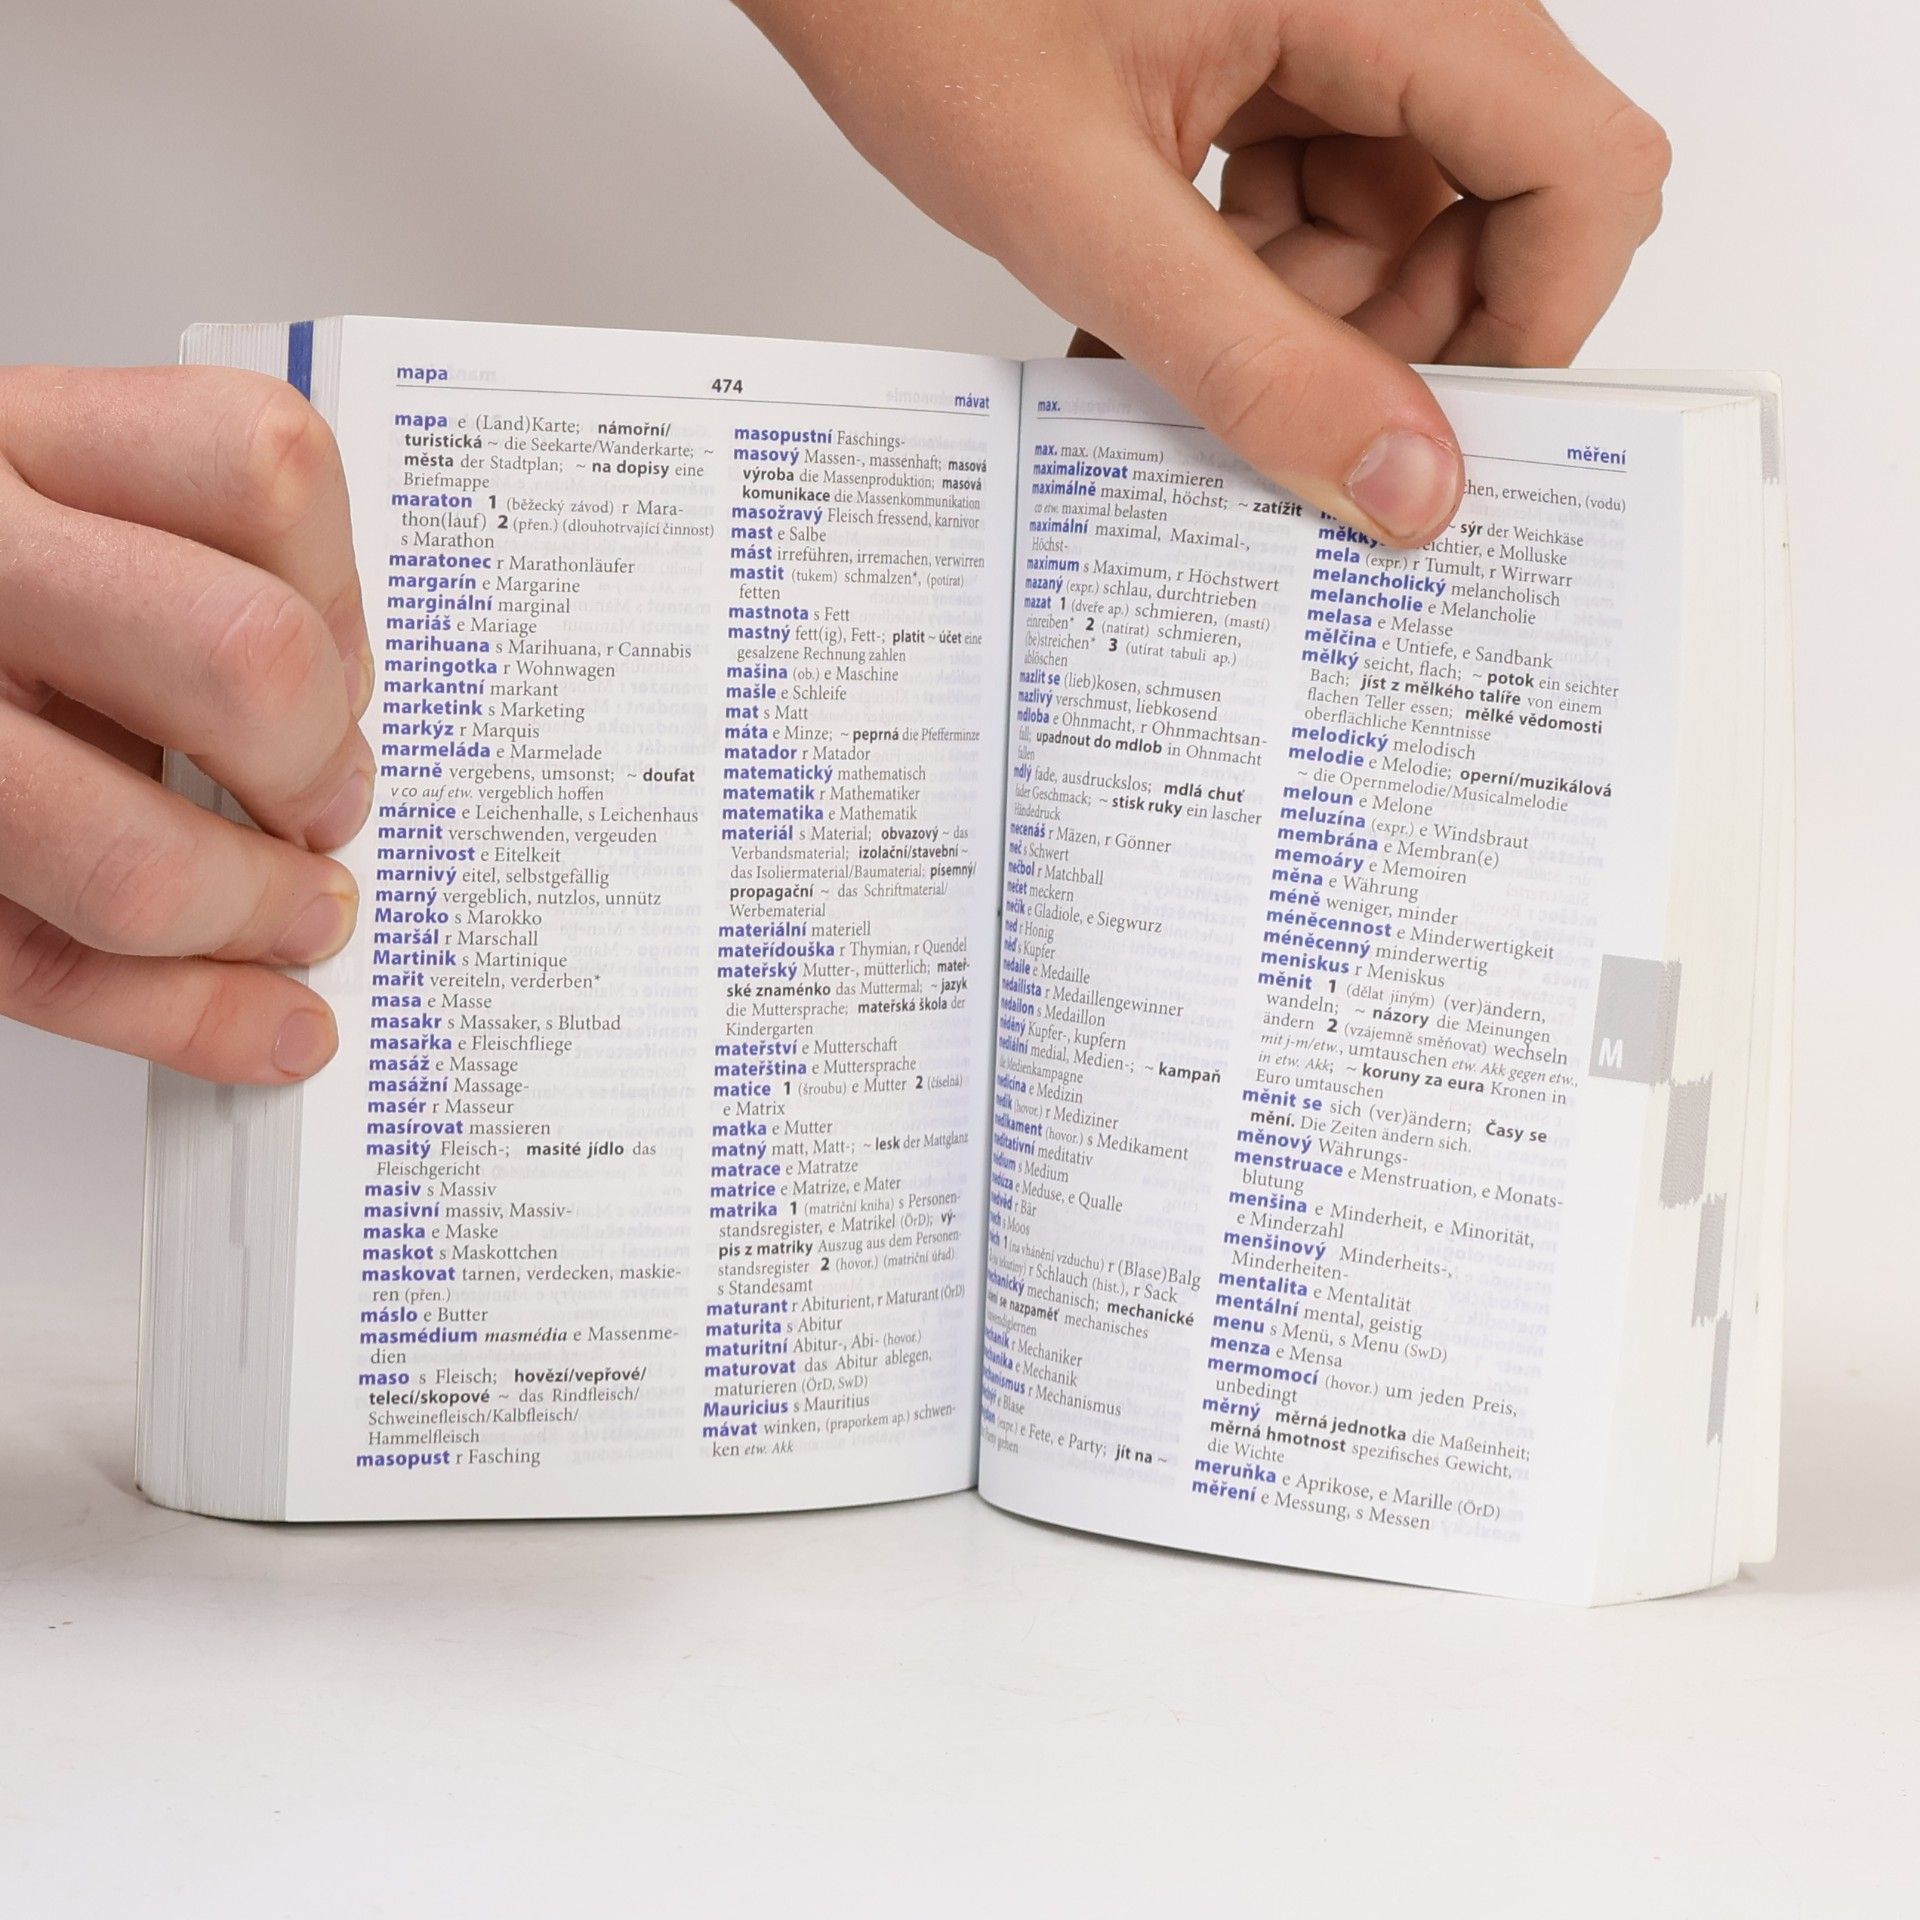 mapa
474
mávat
mapa e (Land)Karte; námořní/
turistická ~ die Seekarte/Wanderkarte; ~
města der Stadtplan; ~ na dopisy eine
Briefmappe
maraton 1 (běžecký závod) r Mara-
thon(lauf) 2 (přen.) (dlouhotrvající činnost)
s Marathon
maratonec r Marathonläufer
margarín e Margarine
marginální marginal
mariáš e Mariage
marihuana s Marihuana, r Cannabis
maringotka r Wohnwagen
markantní markant
marketink s Marketing
markýz r Marquis
marmeláda e Marmelade
marně vergebens, umsonst; ~ doufat
v co auf etw. vergeblich hoffen
márnice e Leichenhalle, s Leichenhaus
marnit verschwenden, vergeuden
marnivost e Eitelkeit
marnivý eitel, selbstgefällig
marný vergeblich, nutzlos, unnütz
Maroko s Marokko
maršál r Marschall
Martinik s Martinique
mařit vereiteln, verderben*
masa e Masse
masakr s Massaker, s Blutbad
masařka e Fleischfliege
masáž e Massage
masážní Massage-
masér r Masseur
masírovat massieren
masitý Fleisch-; masité jídlo das
Fleischgericht
masiv s Massiv
masivní massiv, Massiv-
maska e Maske
maskot s Maskottchen
maskovat tarnen, verdecken, maskie-
ren (přen.)
máslo e Butter
masmédium masmédia e Massenme-
dien
maso s Fleisch; hovězí/vepřové/
telecí/skopové ~ das Rindfleisch/
Schweinefleisch/Kalbfleisch/
Hammelfleisch
masopust r Fasching
masopustní Faschings-
masový Massen-, massenhaft; masová
výroba die Massenproduktion; masová
komunikace die Massenkommunikation
masožravý Fleisch fressend, karnivor
mast e Salbe
mást irreführen, irremachen, verwirren
mastit (tukem) schmalzen*, (potírat)
fetten
mastnota s Fett
mastný fett(ig), Fett-; platit ~ účet eine
gesalzene Rechnung zahlen
mašina (ob.) e Maschine
mašle e Schleife
mat s Matt
máta e Minze; ~ peprná die Pfefferminze
matador r Matador
matematický mathematisch
matematik r Mathematiker
matematika e Mathematik
materiál s Material; obvazový ~ das
Verbandsmaterial; izolační/stavební ~
das Isoliermaterial/Baumaterial; písemný/
propagační ~ das Schriftmaterial/
Werbematerial
materiální materiell
mateřídouška r Thymian, r Quendel
mateřský Mutter-, mütterlich; mateř-
ské znaménko das Muttermal; ~ jazyk
die Muttersprache; mateřská škola der
Kindergarten
mateřství e Mutterschaft
mateřština e Muttersprache
matice 1 (šroubu) e Mutter 2 (číselná)
e Matrix
matka e Mutter
matný matt, Matt-; ~ lesk der Mattglanz
matrace e Matratze
matrice e Matrize, e Mater
matrika 1 (matriční kniha) s Personen-
standsregister, e Matrikel (ÖrD); vý-
pis z matriky Auszug aus dem Personen-
standsregister 2 (hovor.) (matriční úřad)
s Standesamt
maturant r Abiturient, r Maturant (ÖrD)
maturita s Abitur
maturitní Abitur-, Abi- (hovor.)
maturovat das Abitur ablegen,
maturieren (ÖrD, SwD)
Mauricius s Mauritius
mávat winken, (praporkem ap.) schwen-
ken etw. Akk
max.
měření
max. max. (Maximum)
maximalizovat maximieren
maximálně maximal, höchst; ~ zatížit
co etw. maximal belasten
maximální maximal, Maximal-,
Höchst-
maximum s Maximum, r Höchstwert
mazaný (expr.) schlau, durchtrieben
mazat 1 (dveře ap.) schmieren, (mastí)
einreiben* 2 (natírat) schmieren,
(be)streichen* 3 (utírat tabuli ap.)
ablöschen
mazlit se (lieb)kosen, schmusen
mazlivý verschmust, liebkosend
mdloba e Ohnmacht, r Ohnmachtsan-
fall; upadnout do mdlob in Ohnmacht
fallen
mdlý fade, ausdruckslos; mdlá chuť
fader Geschmack; ~ stisk ruky ein lascher
Händedruck
mecenáš r Mäzen, r Gönner
meč s Schwert
mečbol r Matchball
mečet meckern
mečík e Gladiole, e Siegwurz
med r Honig
měď s Kupfer
medaile e Medaille
medailista r Medaillengewinner
medailon s Medaillon
měděný Kupfer-, kupfern
mediální medial, Medien-; ~ kampaň
die Medienkampagne
medicína e Medizin
medik (hovor.) r Mediziner
medikament (hovor.) s Medikament
meditativní meditativ
médium s Medium
medúza e Meduse, e Qualle
medvěd r Bär
mech s Moos
měch 1 (na vhánění vzduchu) r (Blase)Balg
r Schlauch (hist.), r Sack
mechanický mechanisch; mechanické
se nazpaměť mechanisches
mechanik r Mechaniker
mechanika e Mechanik
mechanismus r Mechanismus
e Blase
(expr.) e Fete, e Party; jít na ~
gehen
erweichen, (vodu)
~ sýr der Weichkäse
e Molluske
mela (expr.) r Tumult, r Wirrwarr
melancholický melancholisch
melancholie e Melancholie
melasa e Melasse
mělčina e Untiefe, e Sandbank
mělký seicht, flach; ~ potok ein seichter
Bach; jíst z mělkého talíře von einem
flachen Teller essen; mělké vědomosti
oberflächliche Kenntnisse
melodický melodisch
melodie e Melodie; operní/muzikálová
~ die Opernmelodie/Musicalmelodie
meloun e Melone
meluzína (expr.) e Windsbraut
membrána e Membran(e)
memoáry e Memoiren
měna e Währung
méně weniger, minder
méněcennost e Minderwertigkeit
méněcenný minderwertig
meniskus r Meniskus
měnit 1 (dělat jiným) (ver)ändern,
wandeln; ~ názory die Meinungen
ändern 2 (vzájemně směňovat) wechseln
mit j-m/etw., umtauschen etw. Akk gegen etw.,
in etw. Akk; ~ koruny za eura Kronen in
Euro umtauschen
měnit se sich (ver)ändern; Časy se
mění. Die Zeiten ändern sich.
měnový Währungs-
menstruace e Menstruation, e Monats-
blutung
menšina e Minderheit, e Minorität,
e Minderzahl
menšinový Minderheits-,
Minderheiten-
mentalita e Mentalität
mentální mental, geistig
menu s Menü, s Menu (SwD)
menza e Mensa
mermomocí (hovor.) um jeden Preis,
unbedingt
měrný měrná jednotka die Maßeinheit;
měrná hmotnost spezifisches Gewicht,
die Wichte
meruňka e Aprikose, e Marille (ÖrD)
měření e Messung, s Messen
M